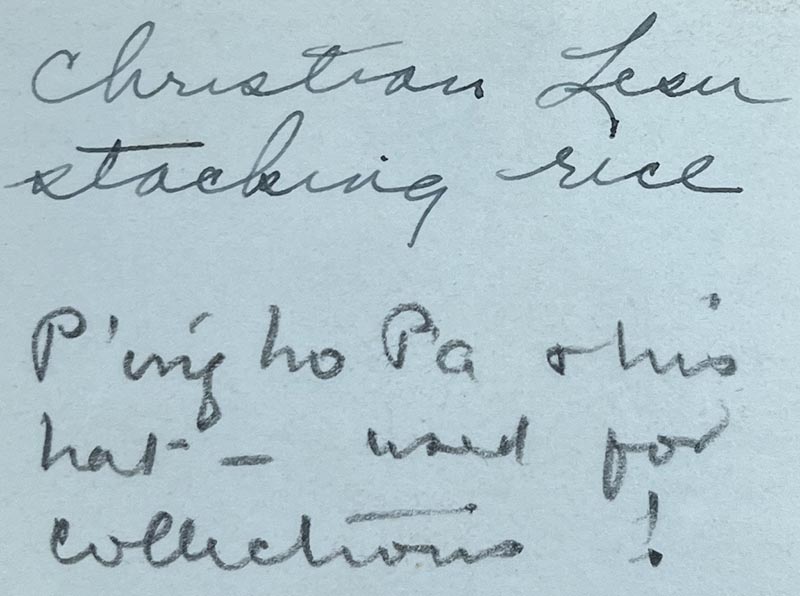 Christian Lesu
stacking rice
P'ing ho P'a & his
hat – used for
collections !